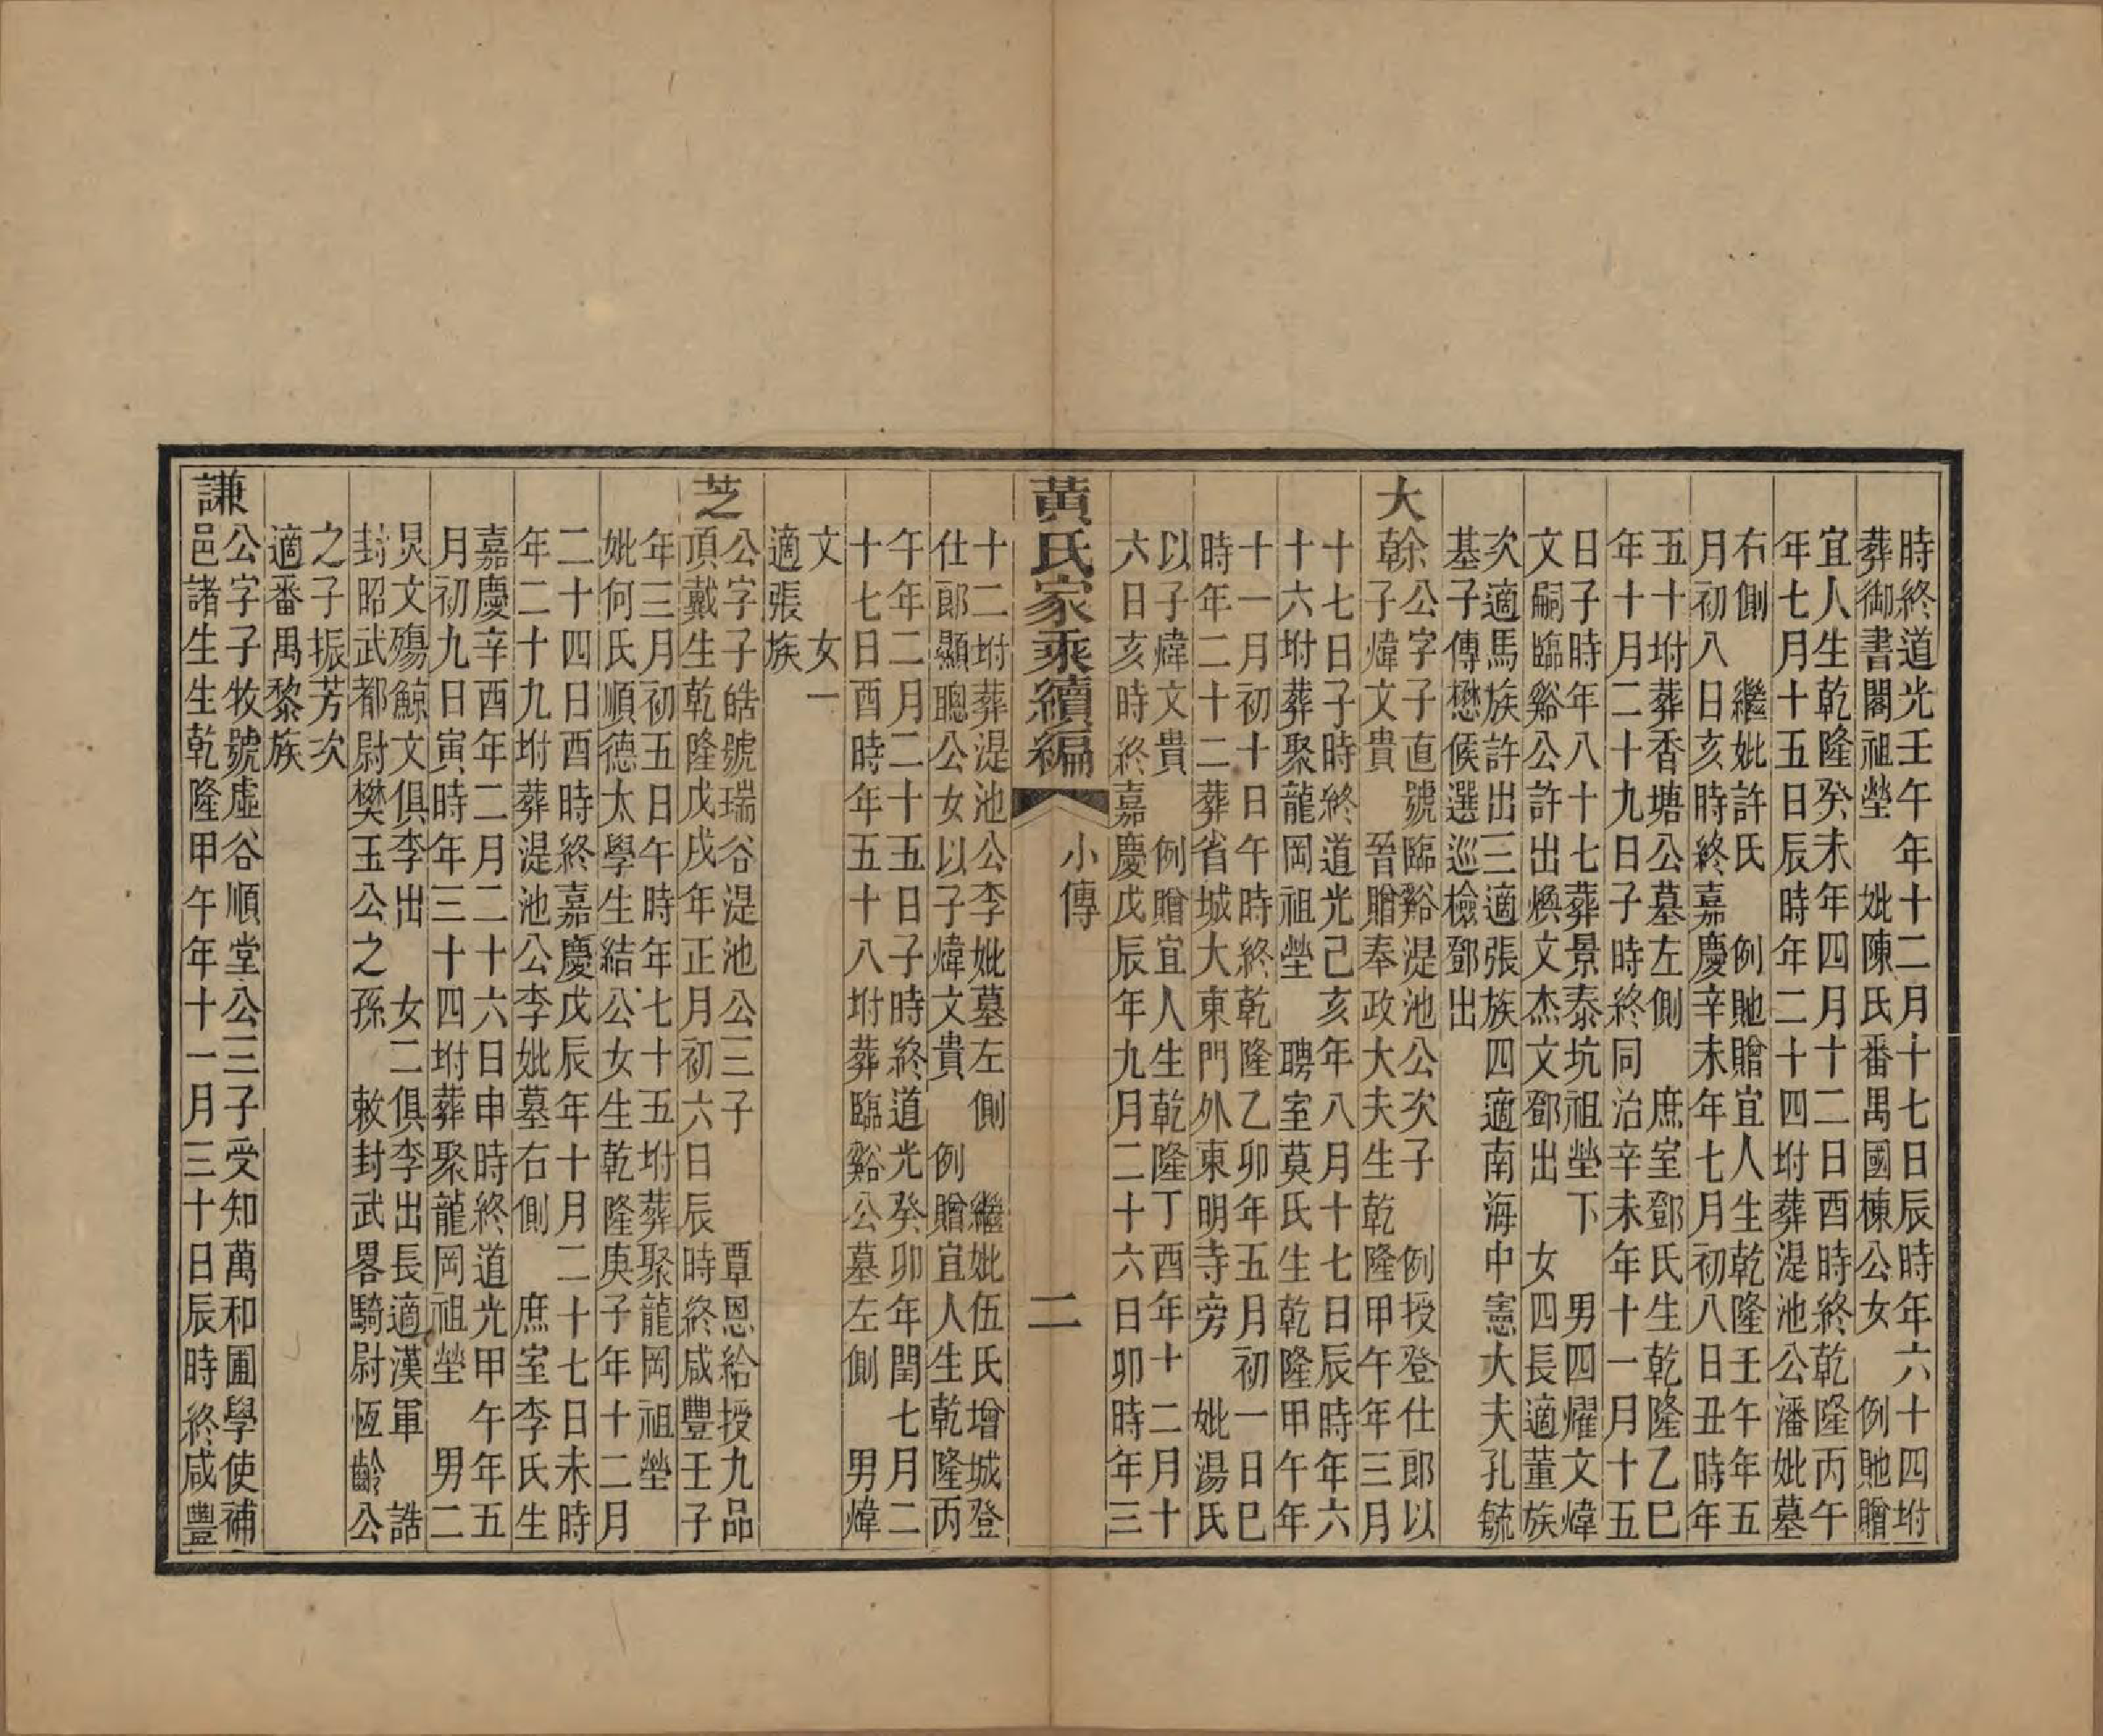 時終道光壬午年十二月十七日辰時年六十四坿
葬御書閣祖塋　妣陳氏番禺國棟公女　例貤贈
宜人生乾隆癸未年四月十二日酉時終乾隆丙午
年七月十五日辰時年二十四坿葬湜池公潘妣墓
右側　繼妣許氏　例貤贈宜人生乾隆壬午年五
月初八日亥時終嘉慶辛未年七月初八日丑時年
五十坿葬香塘公墓左側　庶室鄧氏生乾隆乙巳
年十月二十九日子時終同治辛未年十一月十五
日子時年八十七葬景泰坑祖塋下　男四燿文煒
文嗣臨谿公許出煥文杰文鄧出　女四長適董族
次適馬族許出三適張族四適南海中憲大夫孔毓
基子傳懋候選巡檢鄧出
大
榦　公字子直號臨谿湜池公次子　例授登仕郎以
子煒文貴　晉贈奉政大夫生乾隆甲午年三月
十七日子時終道光己亥年八月十七日辰時年六
十六坿葬聚龍岡祖塋　聘室莫氏生乾隆甲午年
十一月初十日午時終乾隆乙卯年五月初一日巳
時年二十二葬省城大東門外東明寺旁　妣湯氏
以子煒文貴　例贈宜人生乾隆丁酉年十二月十
六日亥時終嘉慶戊辰年九月二十六日卯時年三
黃氏家乘續編　小傳　二
十二坿葬湜池公李妣墓左側　繼妣伍氏增城登
仕郎顯聰公女以子煒文貴　例贈宜人生乾隆丙
午年二月二十五日子時終道光癸卯年閏七月二
十七日酉時年五十八坿葬臨谿公墓左側　男煒
文　女一
適張族
芝
公字子皓號瑞谷湜池公三子　覃恩給授九品
頂戴生乾隆戊戌年正月初六日辰時終咸豐壬子
年三月初五日午時年七十五坿葬聚龍岡祖塋
妣何氏順德太學生結公女生乾隆庚子年十二月
二十四日酉時終嘉慶戊辰年十月二十七日未時
年二十九坿葬湜池公李妣墓右側　庶室李氏生
嘉慶辛酉年二月二十六日申時終道光甲午年五
月初九日寅時年三十四坿葬聚龍岡祖塋　男二
炅文殤鯨文俱李出　女二俱李出長適漢軍　誥
封昭武都尉樊玉公之孫　敕封武畧騎尉恆齡公
之子振芳次
適番禺黎族
謙
公字子牧號虛谷順堂公三子受知萬和圃學使補
邑諸生生乾隆甲午年十一月三十日辰時終咸豐